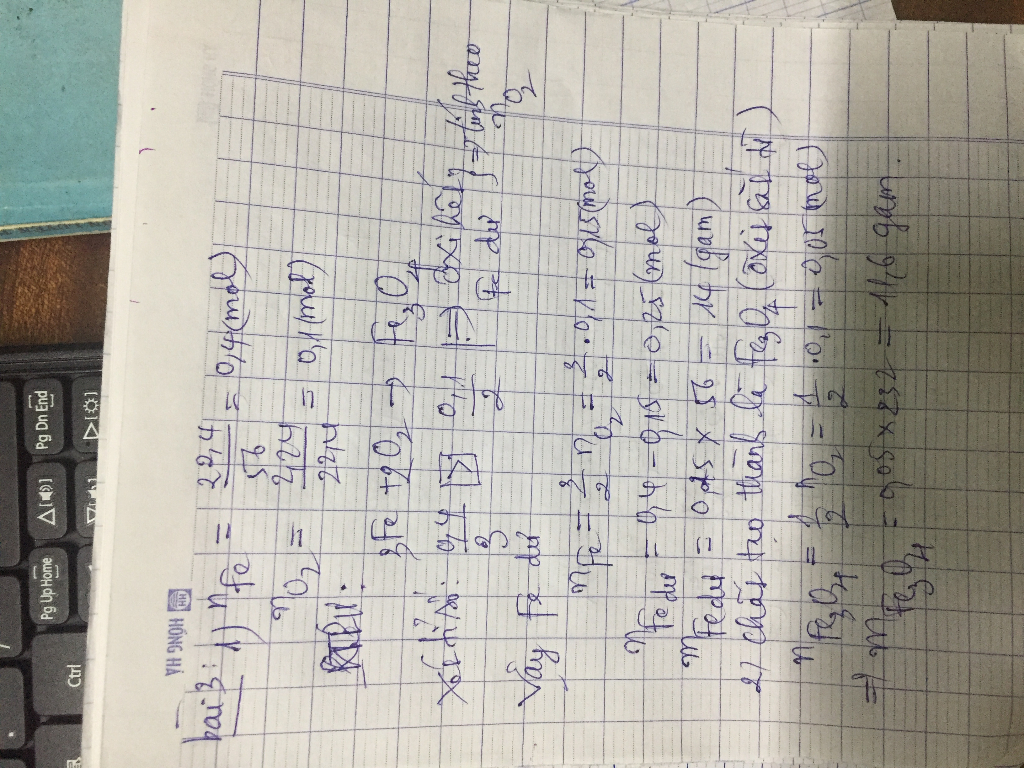 HỒNG HÀ HH
bài 3: 1) nFe = 22,4/56 = 0,4 (mol)
nO2 = 2,24/22,4 = 0,1 (mol)
3Fe + 2O2 → Fe3O4
Xét tỉ số: 0,4/3 > 0,1/2 => oxi hết, Fe dư => tính theo nO2
Vậy Fe dư
nFe = 3/2 nO2 = 3/2 . 0,1 = 0,15 (mol)
nFe dư = 0,4 - 0,15 = 0,25 (mol)
mFe dư = 0,25 x 56 = 14 (gam)
2) chất tạo thành là Fe3O4 (oxit sắt từ)
nFe3O4 = 1/2 nO2 = 1/2 . 0,1 = 0,05 (mol)
=> mFe3O4 = 0,05 x 232 = 11,6 gam
Pg Up Home
Pg Dn End
Ctrl